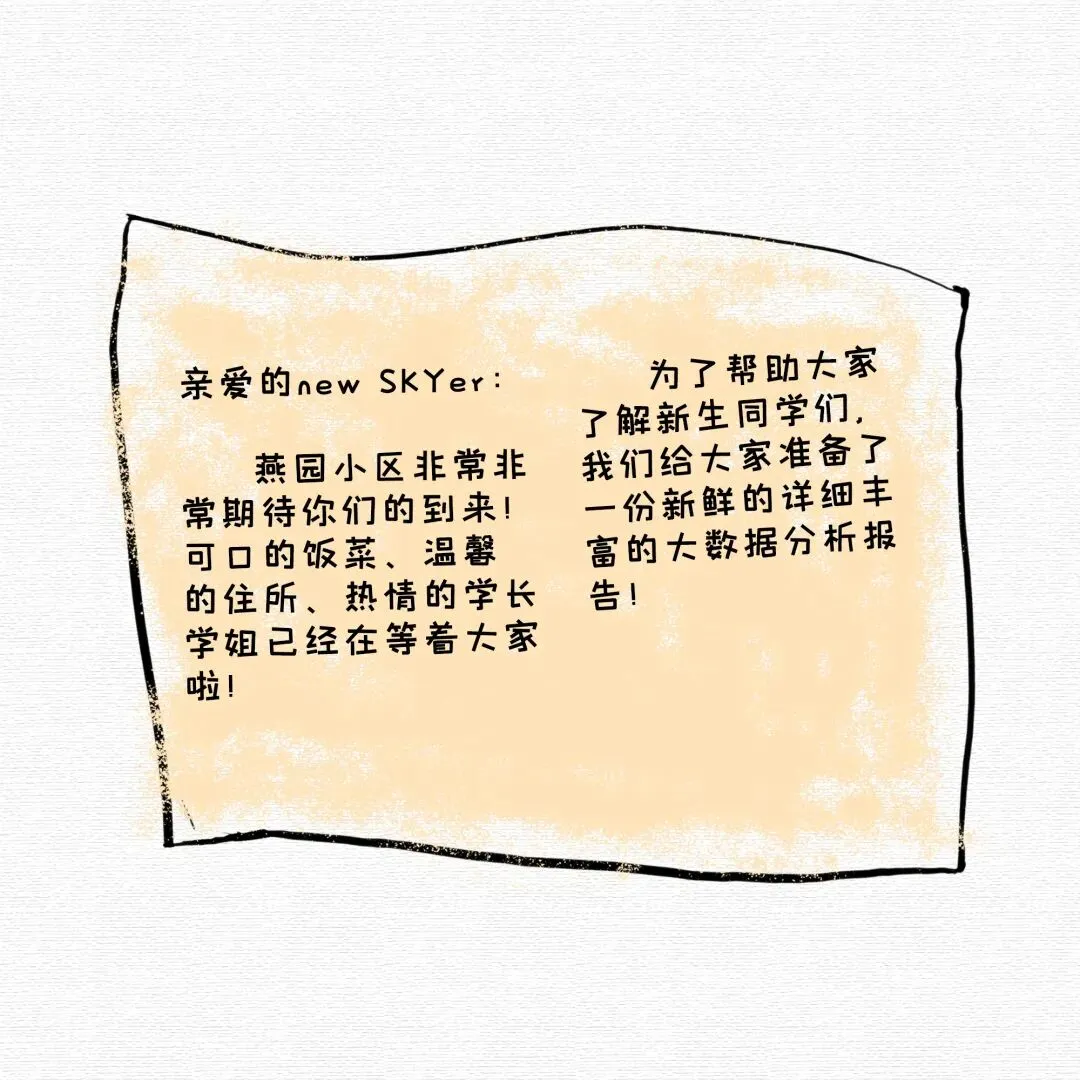 亲爱的new SKYer：
燕园小区非常非
常期待你们的到来！
可口的饭菜、温馨
的住所、热情的学长
学姐已经在等着大家
啦！
为了帮助大家
了解新生同学们，
我们给大家准备了
一份新鲜的详细丰
富的大数据分析报
告！